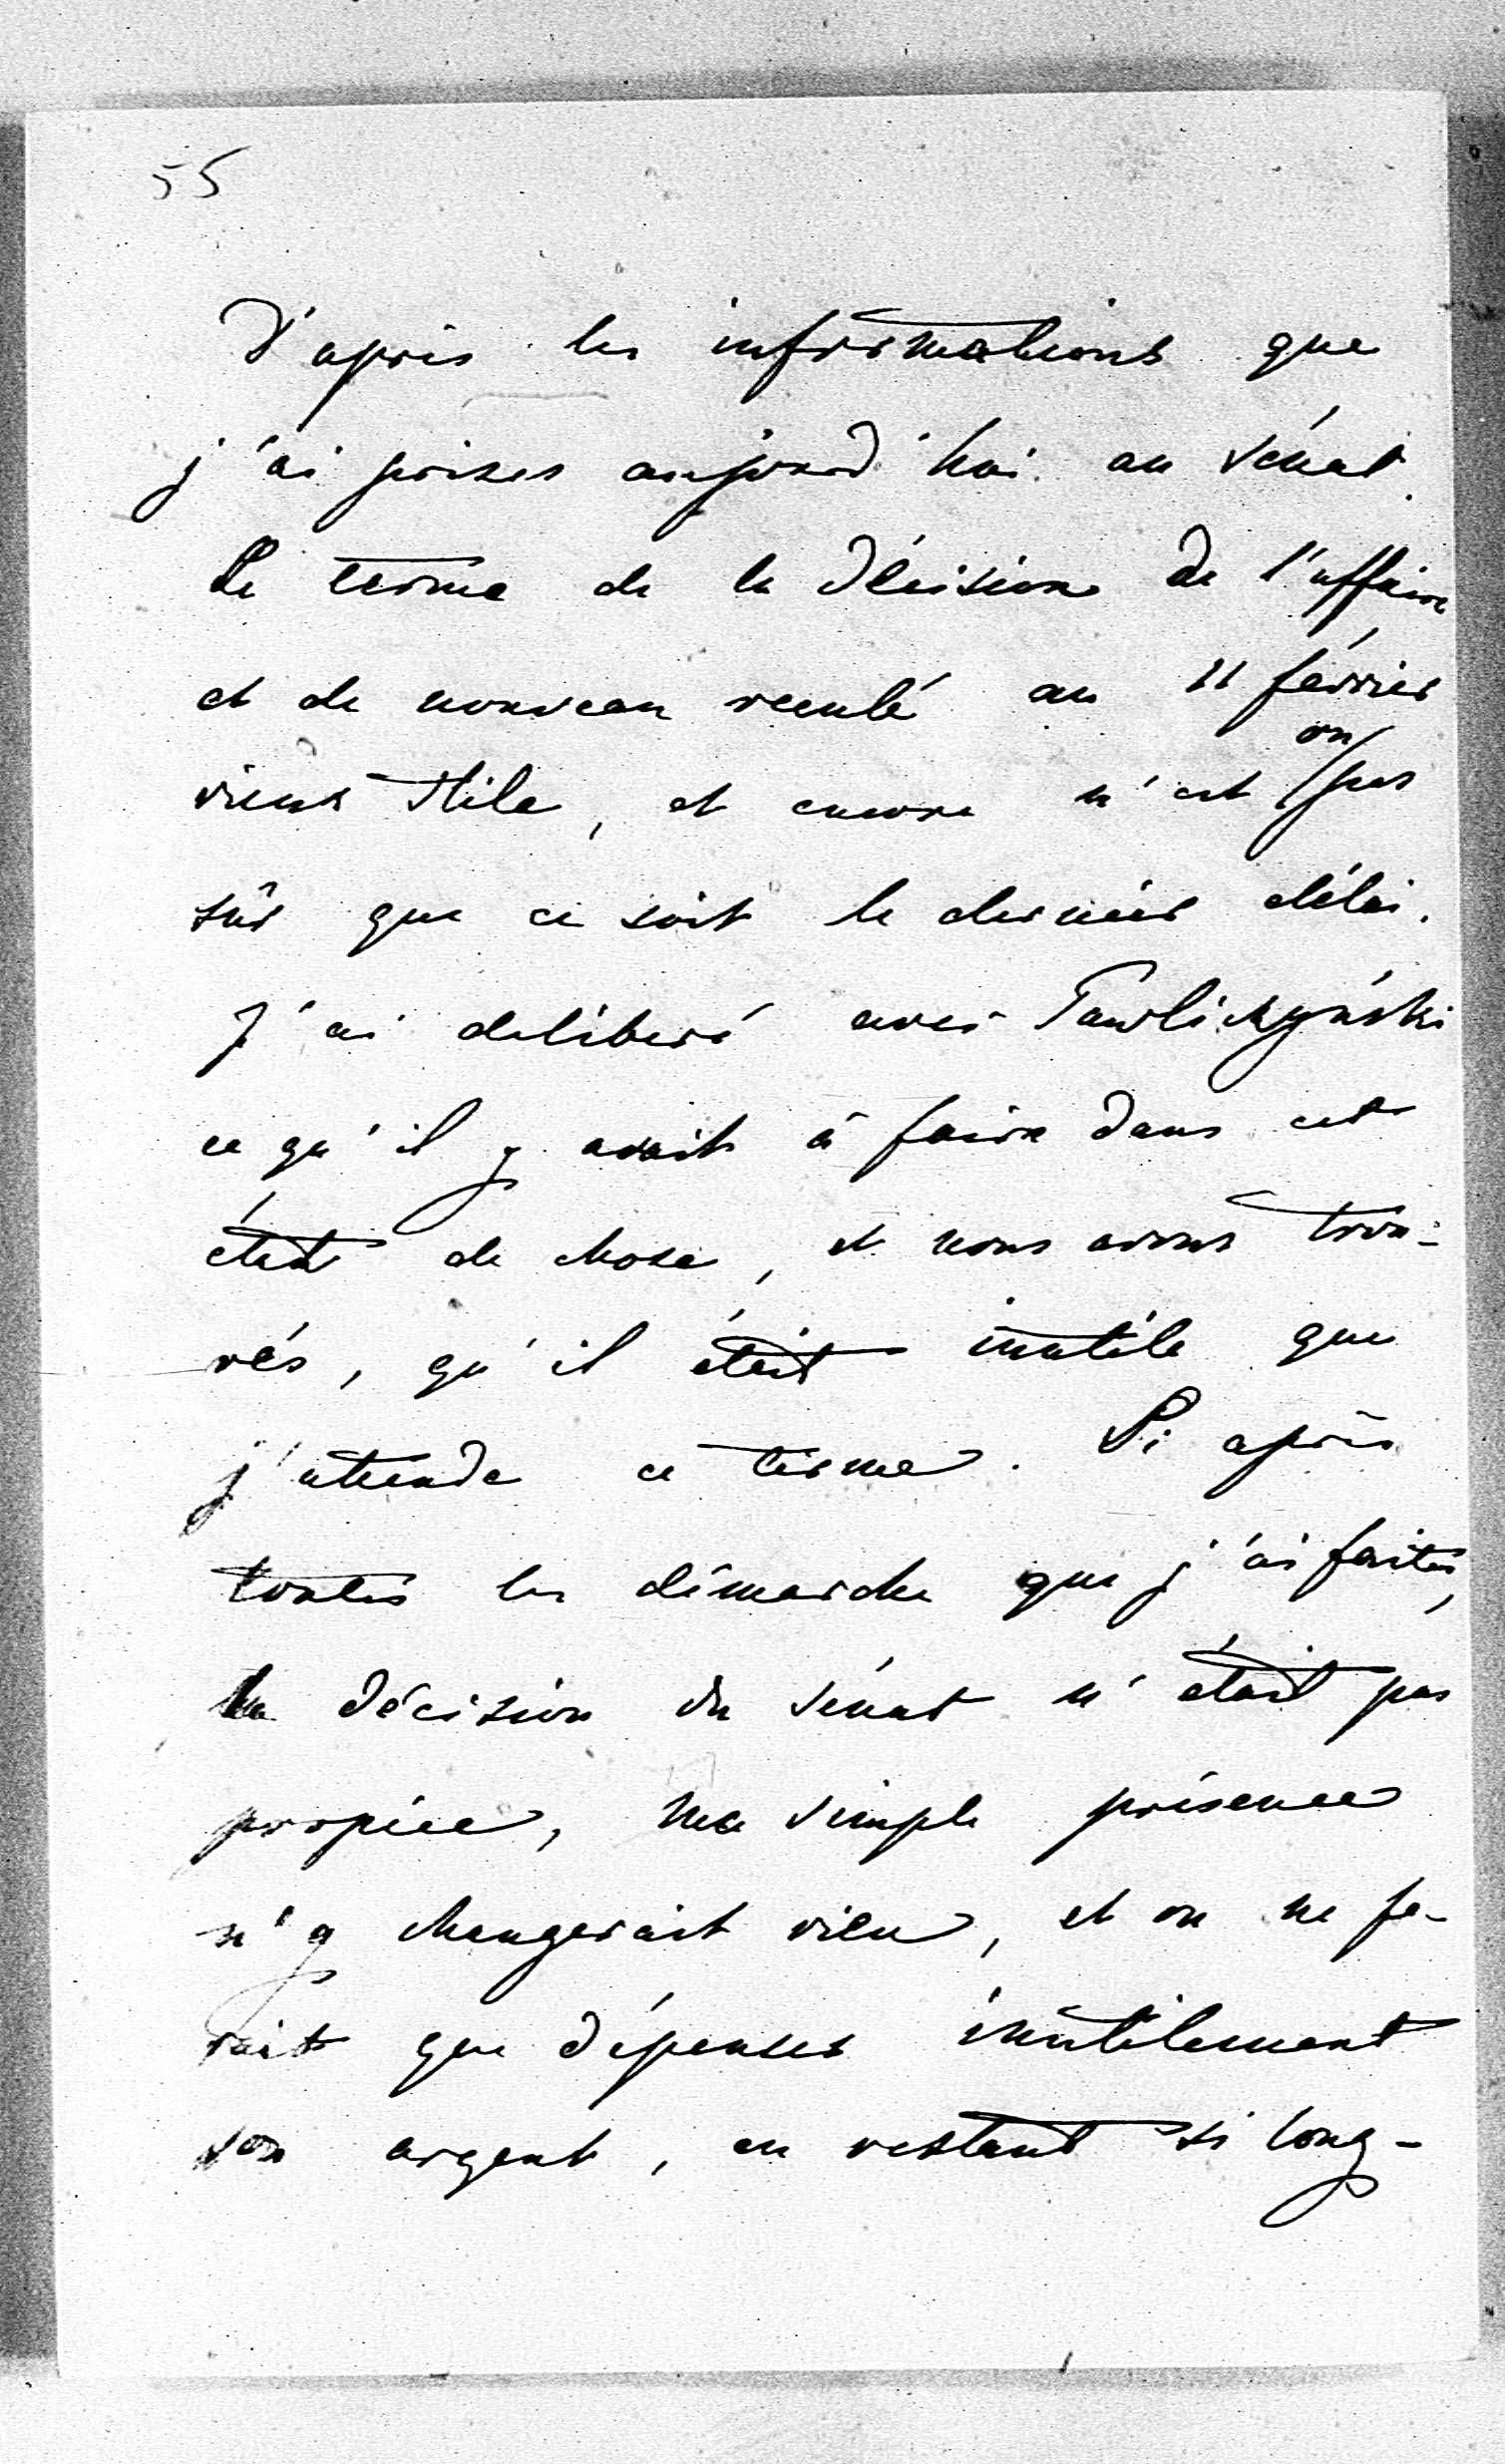 55
D'après les informations que
j'ai prises aujourd'hui au Sénat.
Le terme de la décision de l'affaire
et de nouveau reculé au 11 février
vieux stile, et encore n'est on pas
sûr que ce soit le dernier délai.
J'ai delibéré avec Pawliczyński
ce qu'il y avait à faire dans cet
état de chose, et nous avons trou-
vés, qu'il était inutile que
j'attende ce terme. Si après
toutes les démarche que j'ai faites,
la décision du Sénat n'était pas
propice, ma simple présence
n'y changerait rien, et on ne fe-
rait que dépenser inutilement
son argent, en restant si long-